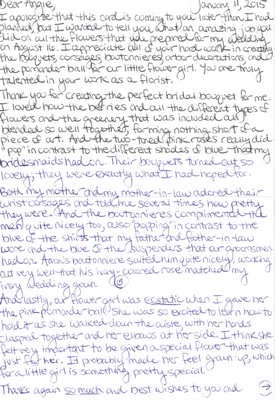 Dear Angie, January 11, 2015
I apologise that this card is coming to you later than I had
planned, but I wanted to tell you what an amazing job you
did on all the flowers that you prepared for my wedding
on August 16. I appreciate all of your hard work in creating
the bouquets, corsages, boutonnieres, arbor decorations, and
the pomander ball for our little flower girl. You are truly
talented in your work as a florist.
Thank you for creating the perfect bridal bouquet for me.
I loved how the berries and all the different types of
flowers and the greenery that was included all
blended so well together, forming nothing short of a
piece of art. And the two-toned pink roses really did
"pop" in contrast to the different shades of blue that my
bridesmaids had on. Their bouquets turned out so
lovely; they were exactly what I had hoped for.
Both my mother and my mother-in-law adored their
wrist corsages and told me several times how pretty
they were. And the boutonnieres complimented the
men quite nicely too, also "popping" in contrast to the
blue of the shirts that my father and father-in-law
wore and the blue of the suspenders that our groomsmen
had on. Aaron's boutonniere suited him quite nicely, working
out very well that his ivory-colored rose matched my
ivory wedding gown.
And lastly, our flower girl was ecstatic when I gave her
the pink pomander ball. She was so excited to learn how to
hold it as she walked down the aisle, with her hands
clasped together and her elbows at her side. I think she
felt very important to be given a special flower that was
just for her. It probably made her feel grown up, which
for a little girl is something pretty special.
Thanks again so much and best wishes to you and